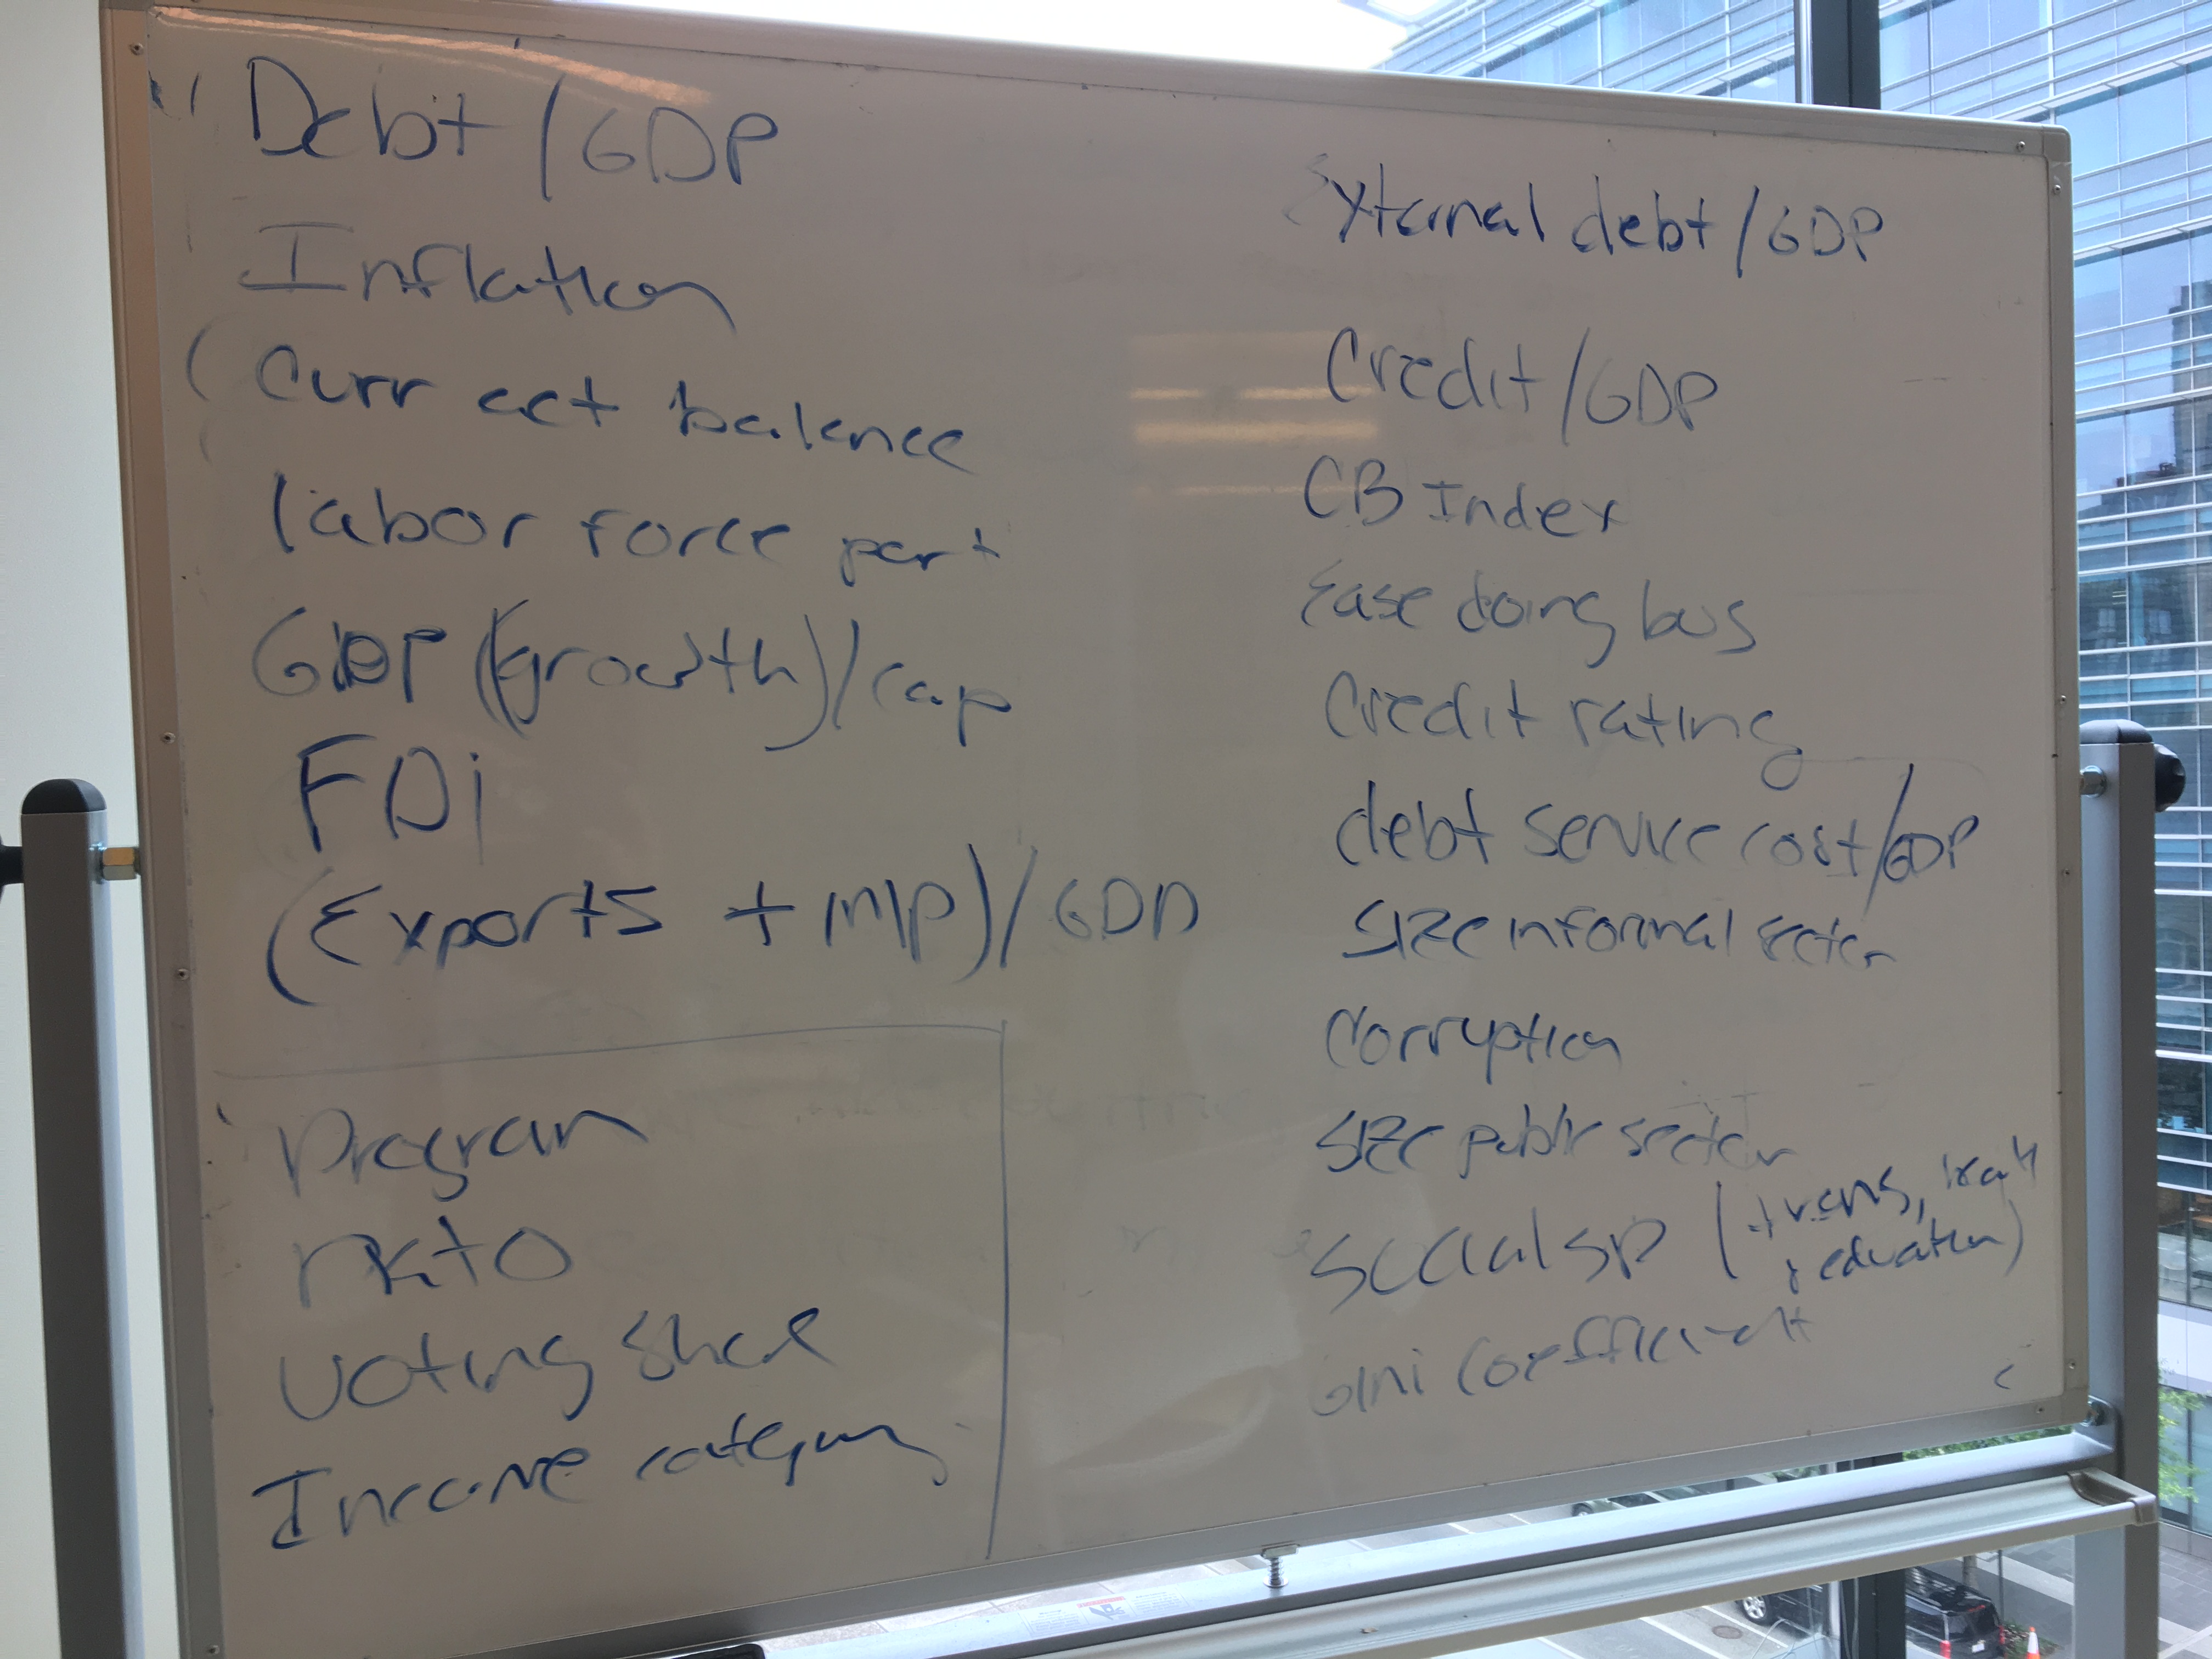 Debt/GDP
Inflation
Curr act balance
labor force part
GDP (growth)/cap
FDi
(Exports + imp)/GDP
Program
Voting share
Income category
External debt/GDP
Credit/GDP
CB Index
Ease doing bus
Credit rating
debt service cost/GDP
size informal sector
Corruption
size public sector
social sp (trans, health
& education)
Gini Coefficient